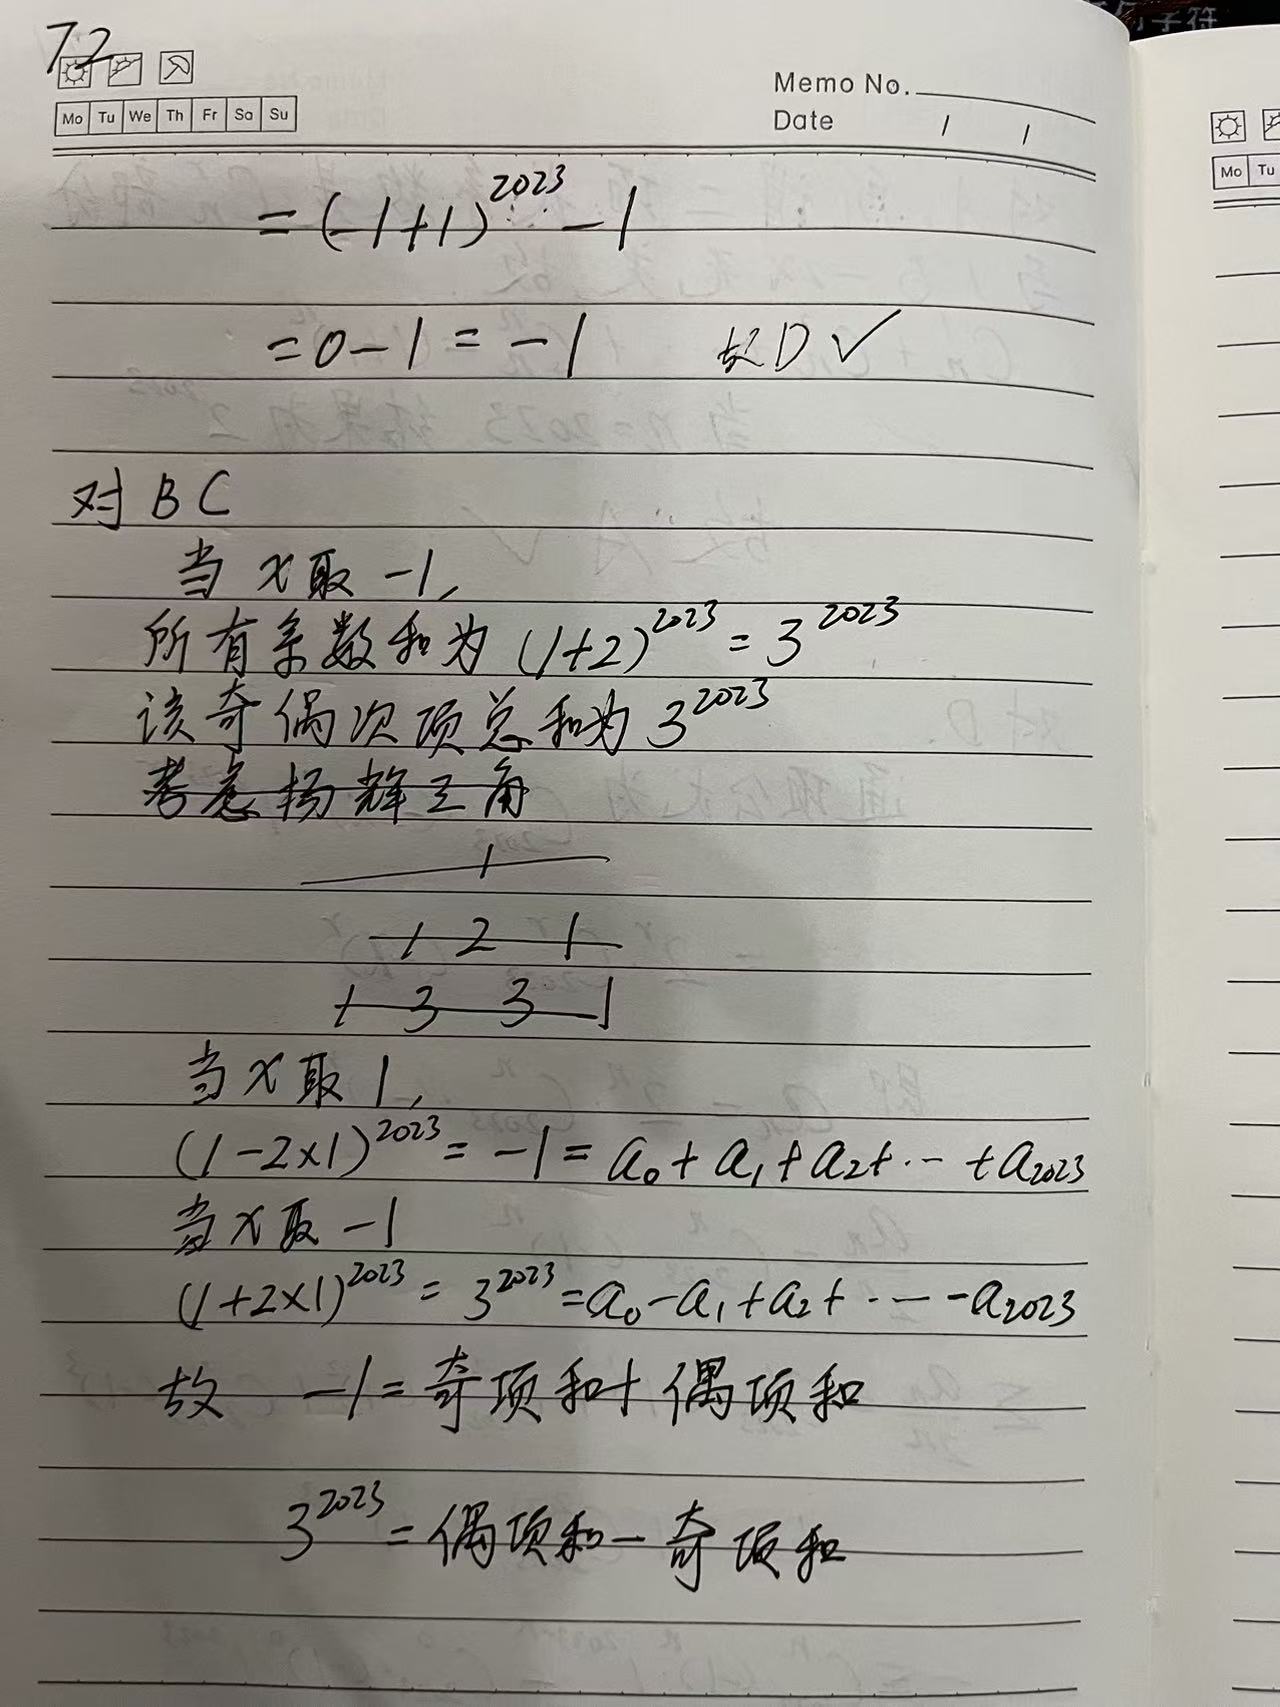 子符
72
Memo No.
Mo Tu We Th Fr Sa Su
Date / /
Mo Tu
=(-1+1)^2023 -1
=0-1=-1 故D✓
对BC
当x取-1,
所有系数和为(1+2)^2023=3^2023
该奇偶次项总和为3^2023
考虑杨辉三角
1
1 2 1
1 3 3 1
当x取1,
(1-2×1)^2023=-1=a₀+a₁+a₂+…+a₂₀₂₃
当x取-1
(1+2×1)^2023=3^2023=a₀-a₁+a₂+…-a₂₀₂₃
故 -1=奇项和+偶项和
3^2023=偶项和-奇项和